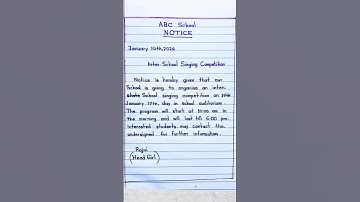 ABC School
NOTICE
January 10th, 2024
Inter-School Singing Competition
Notice is hereby given that our
School is going to organise an inter-
School singing competition on
January 17th, day in school auditorium.
The program will start at 10:00 am in
the morning and will last till 5:00 pm.
Interested students may contact the
undersigned for further information.
Rajni
(Head Girl)